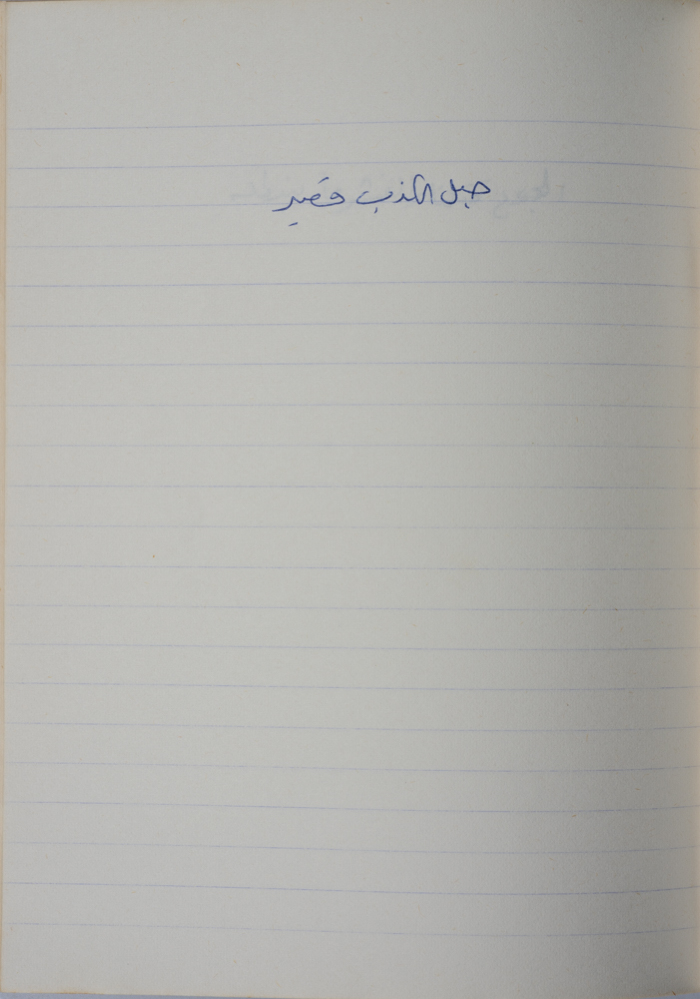 حبل الكذب قصير